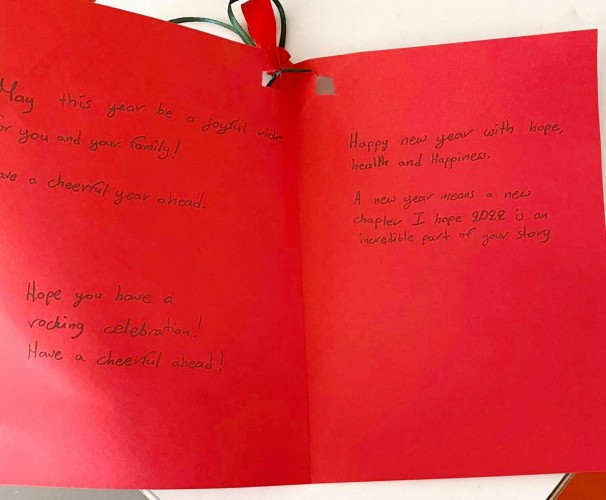 May this year be a joyful ride
for you and your family!
ave a cheerful year ahead.
Hope you have a
rocking celebration!
Have a cheerful ahead!
Happy new year with hope,
health and Happiness.
A new year means a new
chapter I hope 2022 is an
incredible part of your story